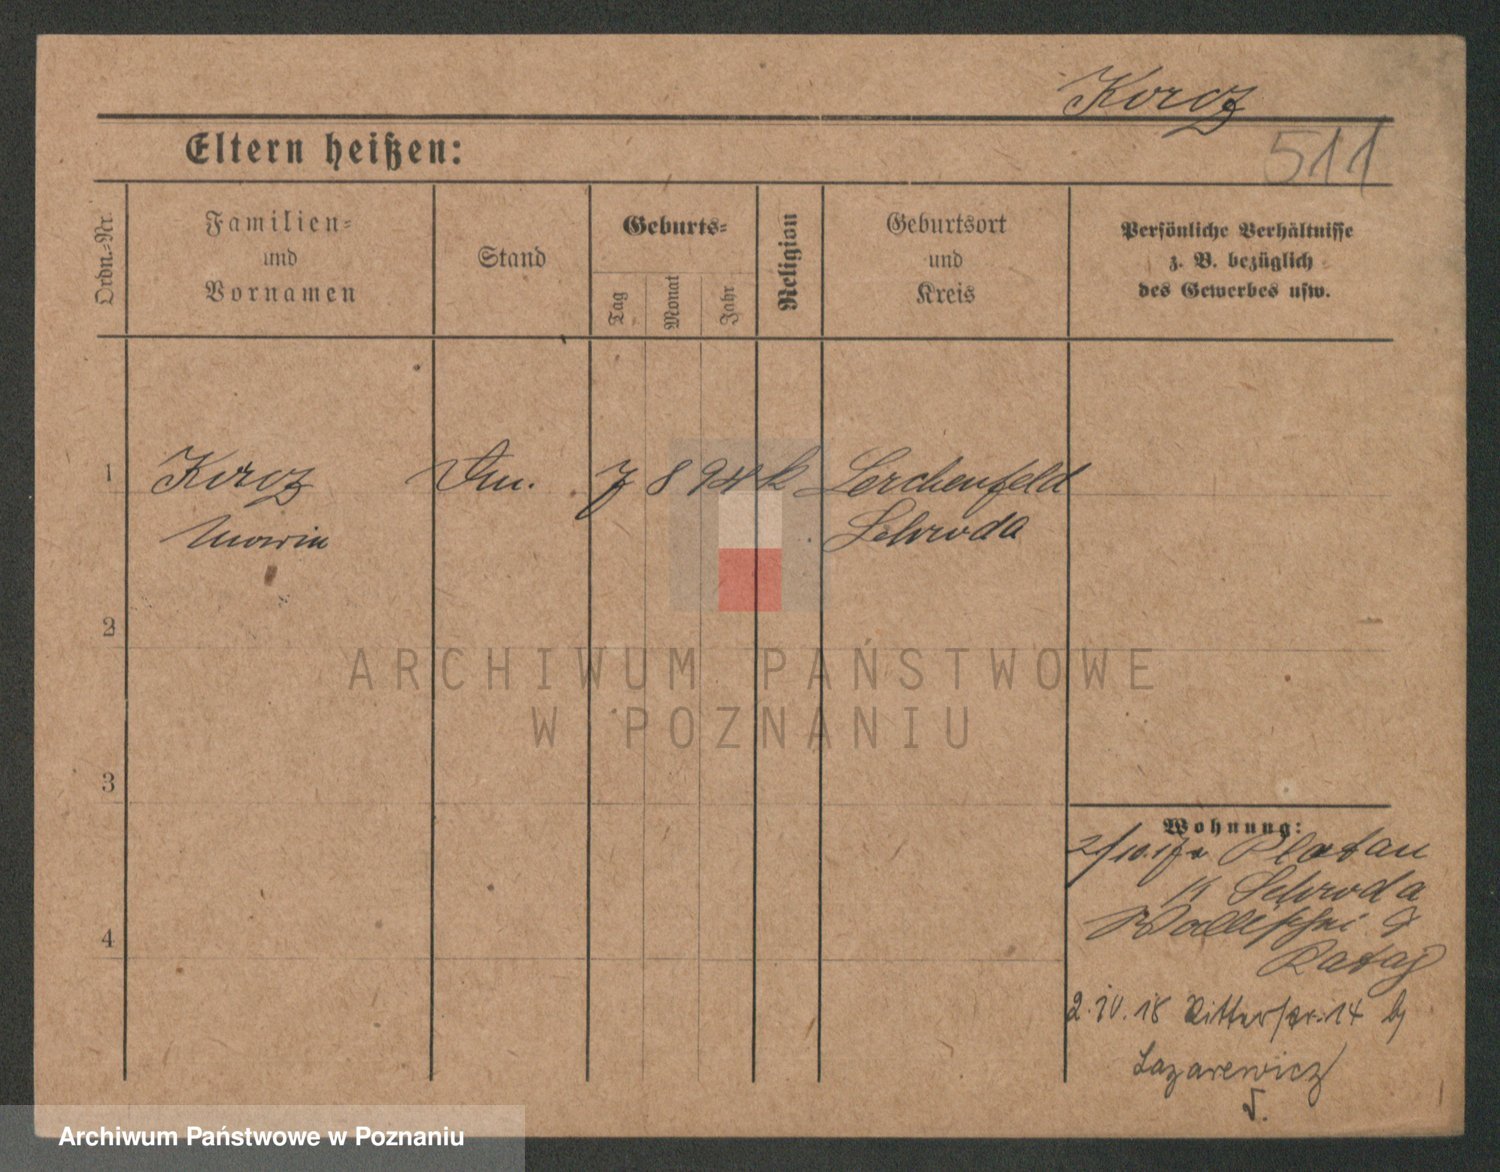 Korcz
511
Eltern heißen:
Ordn.-Nr.
Familien-
und
Vornamen
Stand
Geburts-
Tag
Monat
Jahr
Religion
Geburtsort
und
Kreis
Persönliche Verhältnisse
z. B. bezüglich
des Gewerbes usw.
1 Korcz 7 8 94 k Lerchenfeld
Schroda
2
ARCHIWUM PAŃSTWOWE
W POZNANIU
3
Wohnung:
Platau
Schroda
4
Rataj
2.IV.18 Ritterstr. 14 bj
Lazarewicz
Archiwum Państwowe w Poznaniu